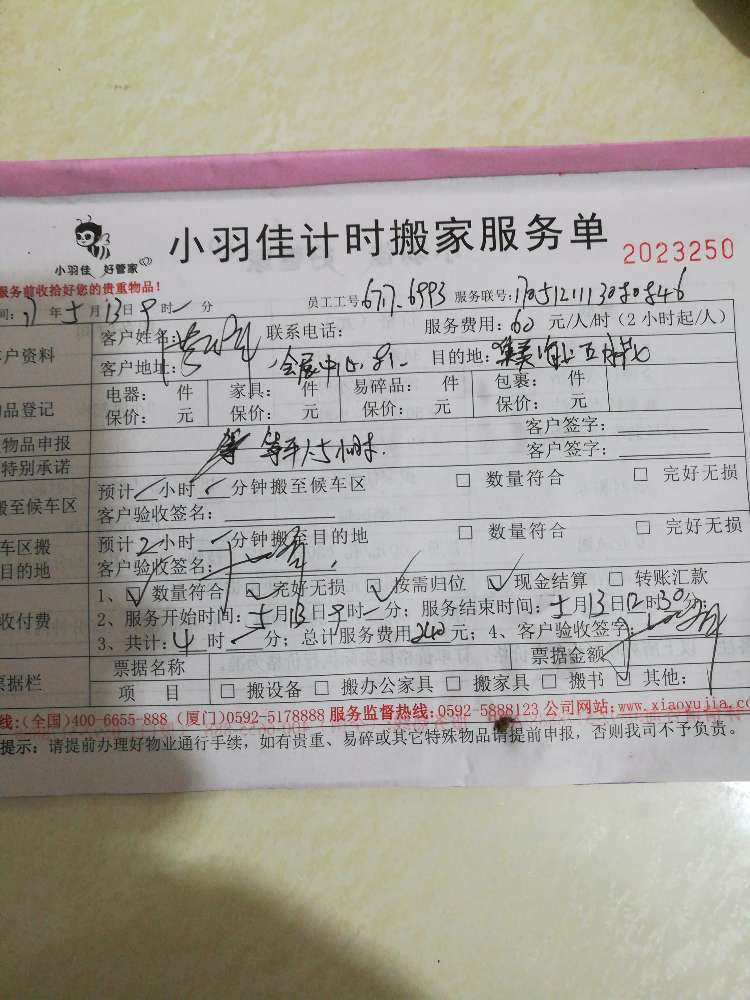 小羽佳 好管家
小羽佳计时搬家服务单
2023250
服务前收拾好您的贵重物品!
间: 17 年 5 月 13 日 9 时 一 分 员工工号: 6717、6993 服务联号:
户资料 客户姓名: 联系电话: 服务费用: 60 元/人/时 (2小时起/人)
客户地址: 会展中心 目的地: 集美
品登记 电器: 件 家具: 件 易碎品: 件 包裹: 件
保价: 元 保价: 元 保价: 元 保价: 元
物品申报 客户签字:
特别承诺 等车 小时. 客户签字:
搬至候车区 预计 小时 分钟搬至候车区 □ 数量符合 □ 完好无损
客户验收签名:
车区搬 预计 2 小时 一 分钟搬至目的地 □ 数量符合 □ 完好无损
目的地 客户验收签名:
1、☑ 数量符合 ☑ 完好无损 ☑ 按需归位 ☑ 现金结算 □ 转账汇款
收付费 2、服务开始时间: 5 月 13 日 9 时 一 分; 服务结束时间: 5 月 13 日 12 时 30 分;
3、共计: 4 时 一 分; 总计服务费用 240 元; 4、客户验收签字:
票据栏 票据名称 票据金额
项 目 □ 搬设备 □ 搬办公家具 □ 搬家具 □ 搬书 □ 其他:
线:(全国)400-6655-888 (厦门)0592-5178888 服务监督热线:0592-5888123 公司网站:www.xiaoyujia.co
提示: 请提前办理好物业通行手续, 如有贵重、易碎或其它特殊物品请提前申报, 否则我司不予负责。